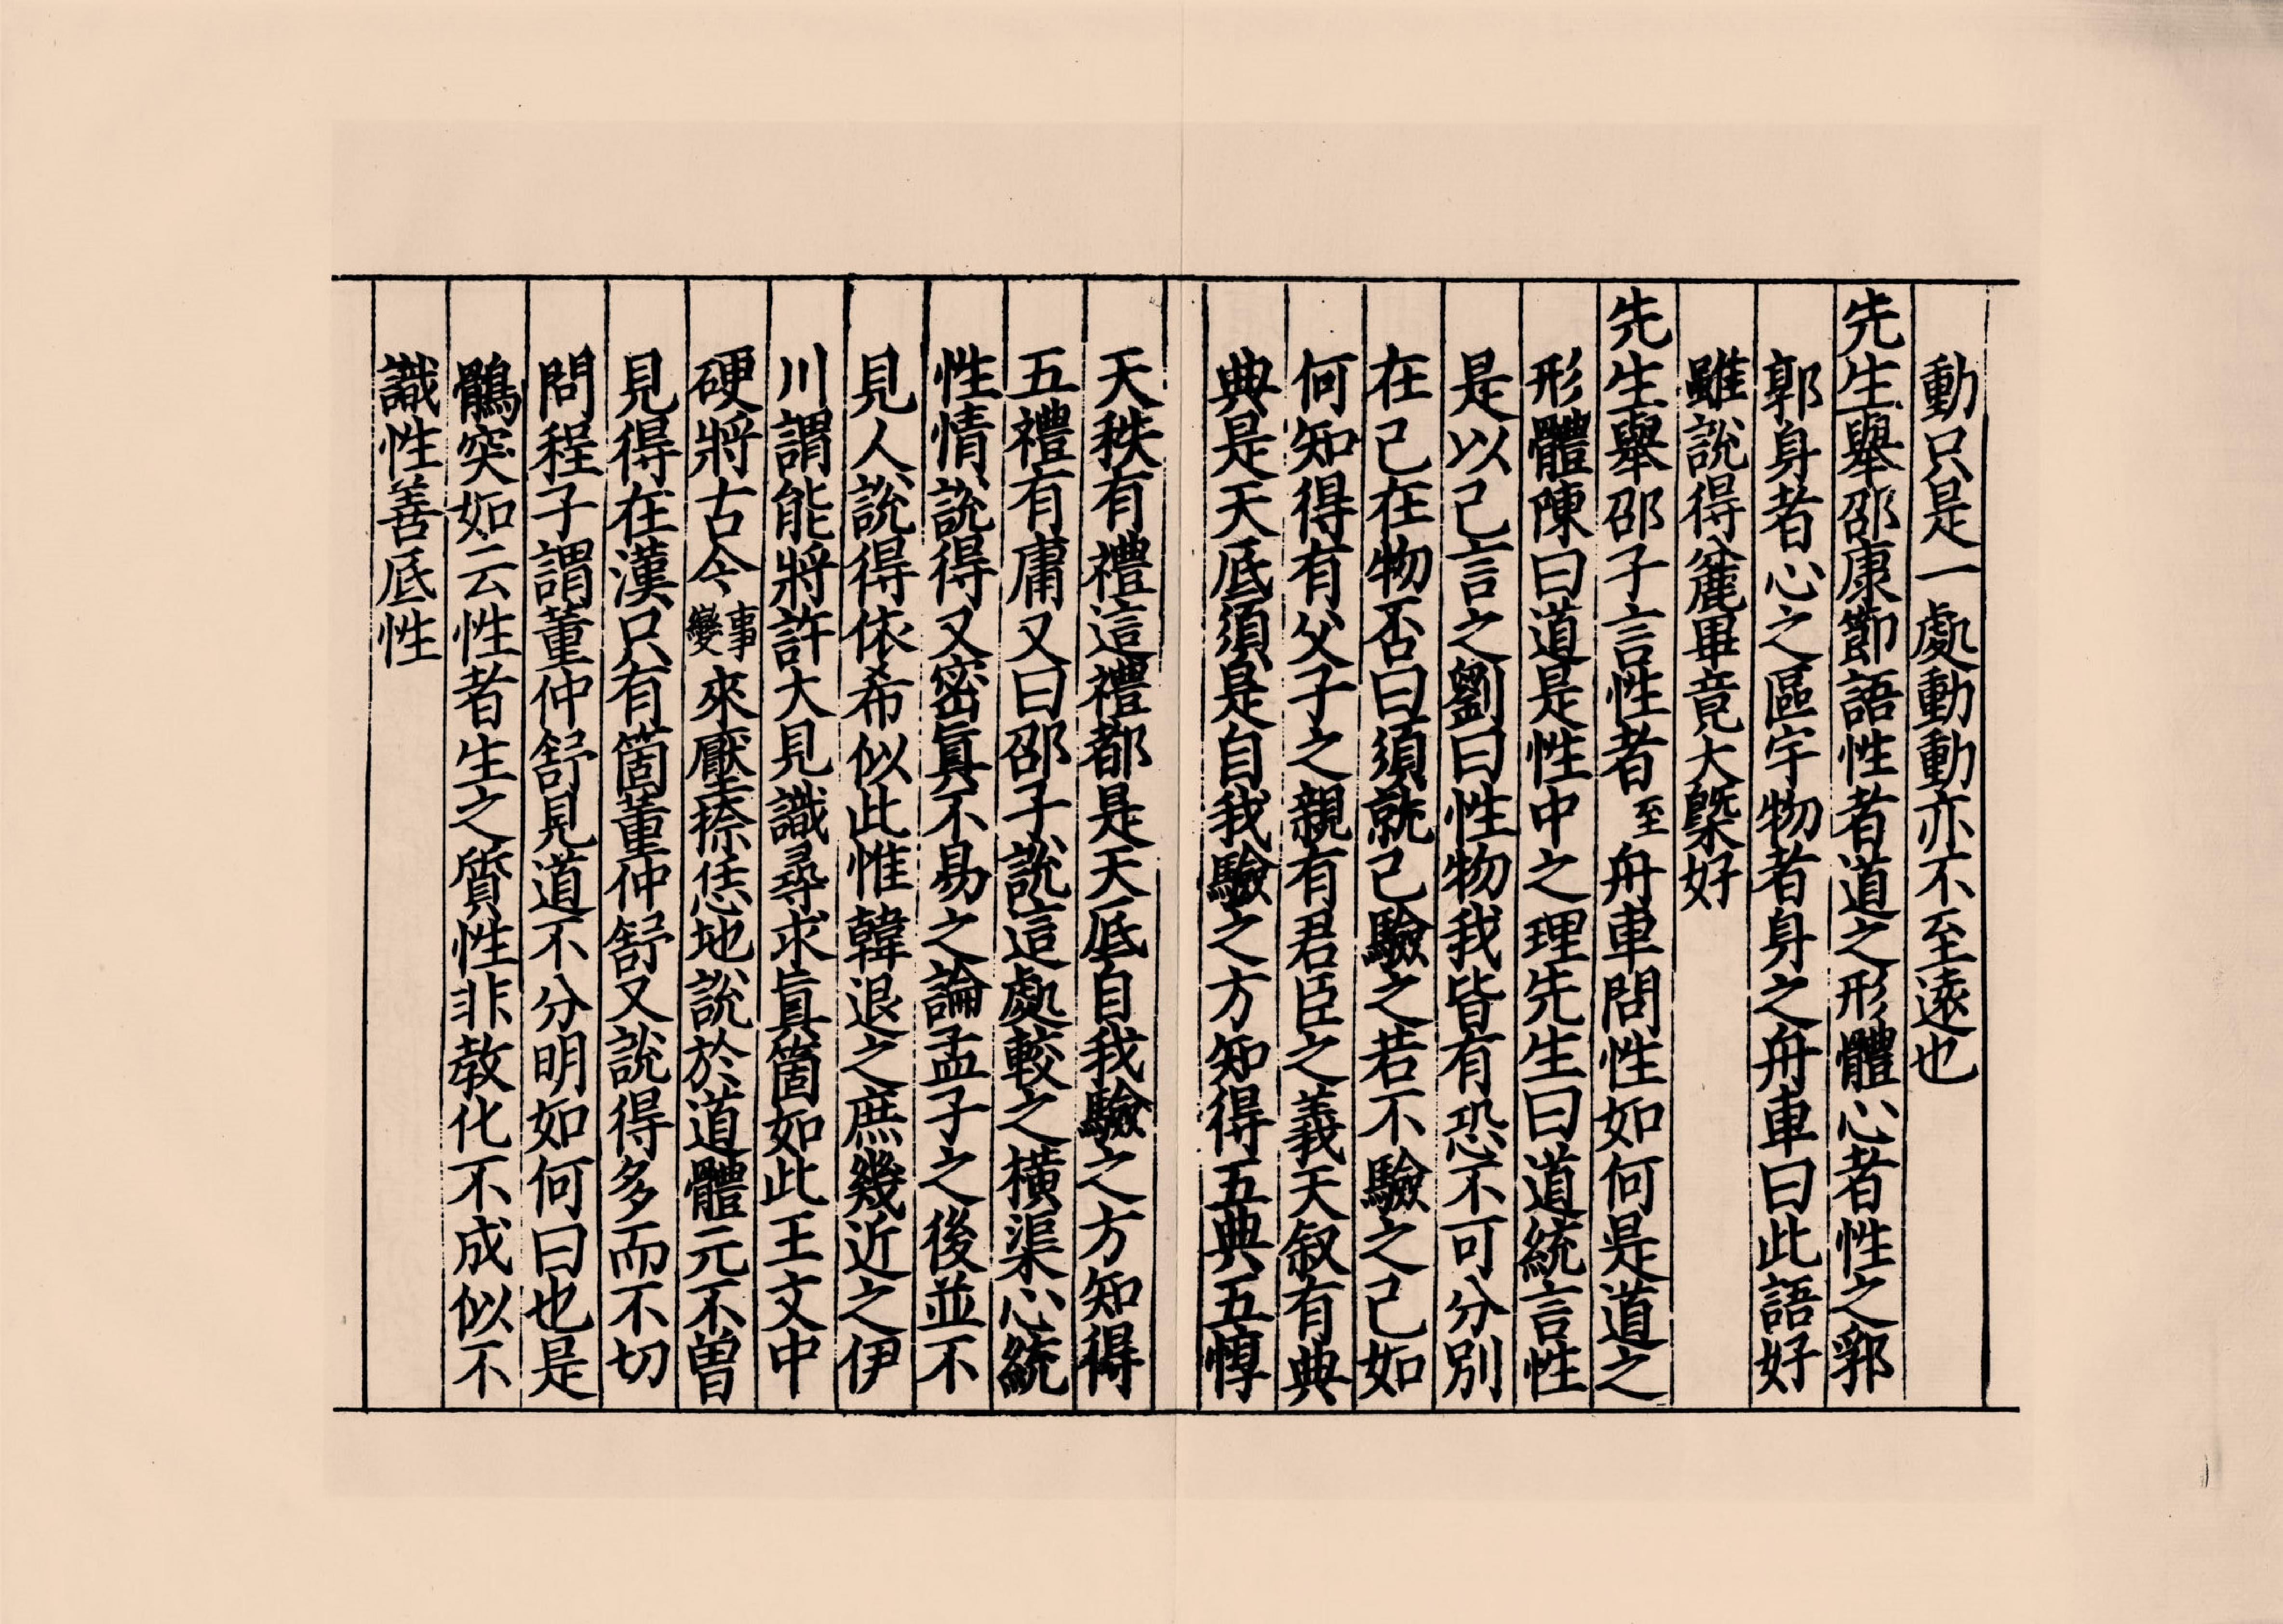 動只是一處動動亦不至遠也
先生舉邵康節語性者道之形體心者性之郛
郭身者心之區宇物者身之舟車曰此語好
雖說得麄畢竟大槩好
先生舉邵子言性者至舟車問性如何是道之
形體陳曰道是性中之理先生曰道統言性
是以己言之劉曰性物我皆有恐不可分別
在己在物否曰須就己驗之若不驗之己如
何知得有父子之親有君臣之義天叙有典
典是天底須是自我驗之方知得五典五惇
天秩有禮這禮都是天底自我驗之方知得
五禮有庸又曰邵子說這處較之橫渠心統
性情說得又密真不易之論孟子之後並不
見人說得依希似此惟韓退之庶幾近之伊
川謂能將許大見識尋求真箇如此王文中
硬將古今事變來壓捺恁地說於道體元不曾
見得在漢只有箇董仲舒又說得多而不切
問程子謂董仲舒見道不分明如何曰也是
鶻突如云性者生之質性非教化不成似不
識性善底性